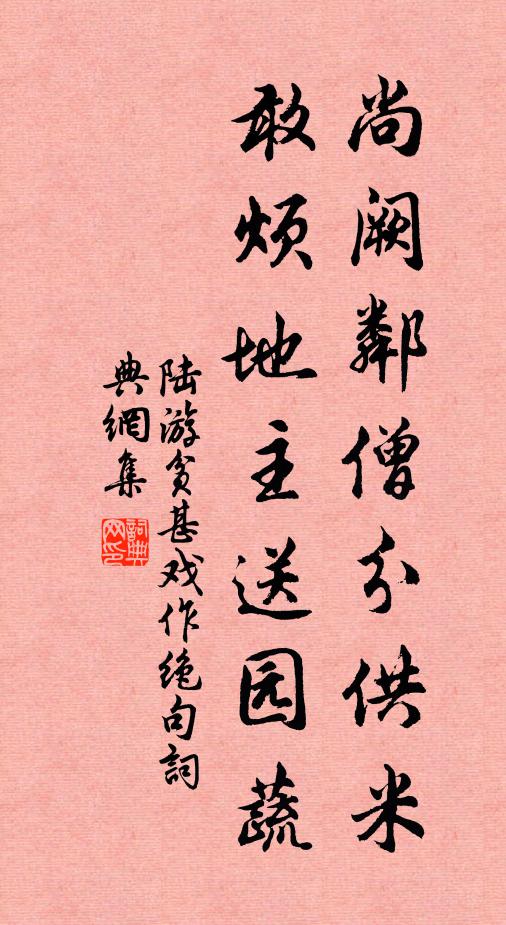 尚阙鄰僧分供米
敢烦地主送园蔬
陆游贫甚戏作绝句詞
典網集
詞典
网印